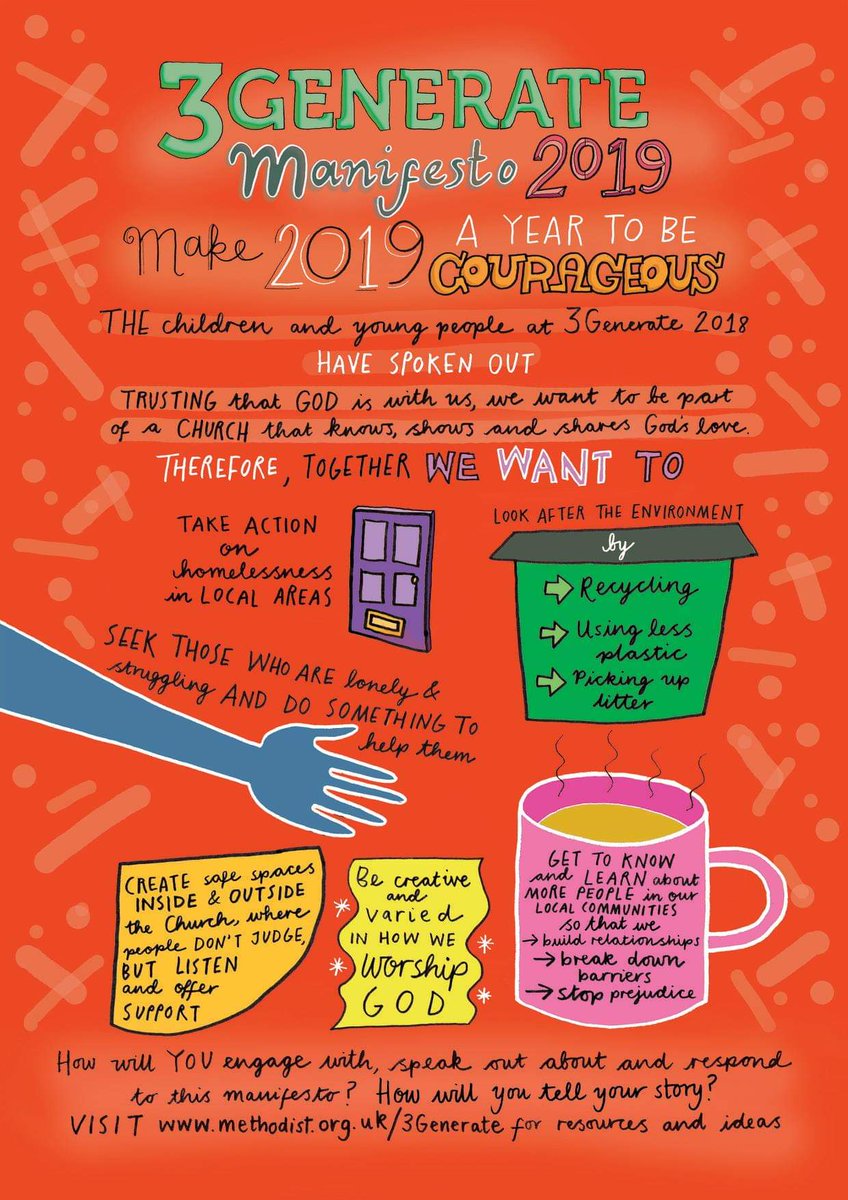 3GENERATE
Manifesto 2019
Make 2019 A YEAR TO BE
COURAGEOUS
THE children and young people at 3Generate 2018
HAVE SPOKEN OUT
TRUSTING that GOD is with us, we want to be part
of a CHURCH that knows, shows and shares God's love.
THEREFORE, TOGETHER WE WANT TO
TAKE ACTION
on
homelessness
in LOCAL AREAS
LOOK AFTER THE ENVIRONMENT
by
Recycling
Using less
plastic
Picking up
litter
SEEK THOSE WHO ARE lonely &
struggling AND DO SOMETHING TO
help them
CREATE safe spaces
INSIDE & OUTSIDE
the Church, where
people DON'T JUDGE,
BUT LISTEN
and offer
SUPPORT
Be creative
and
varied
IN HOW WE
Worship
GOD
GET TO KNOW
and LEARN about
MORE PEOPLE in our
LOCAL COMMUNITIES
so that we
→ build relationships
→ break down
barriers
→ stop prejudice
How will YOU engage with, speak out about and respond
to this manifesto? How will you tell your story?
VISIT www.methodist.org.uk/3Generate for resources and ideas